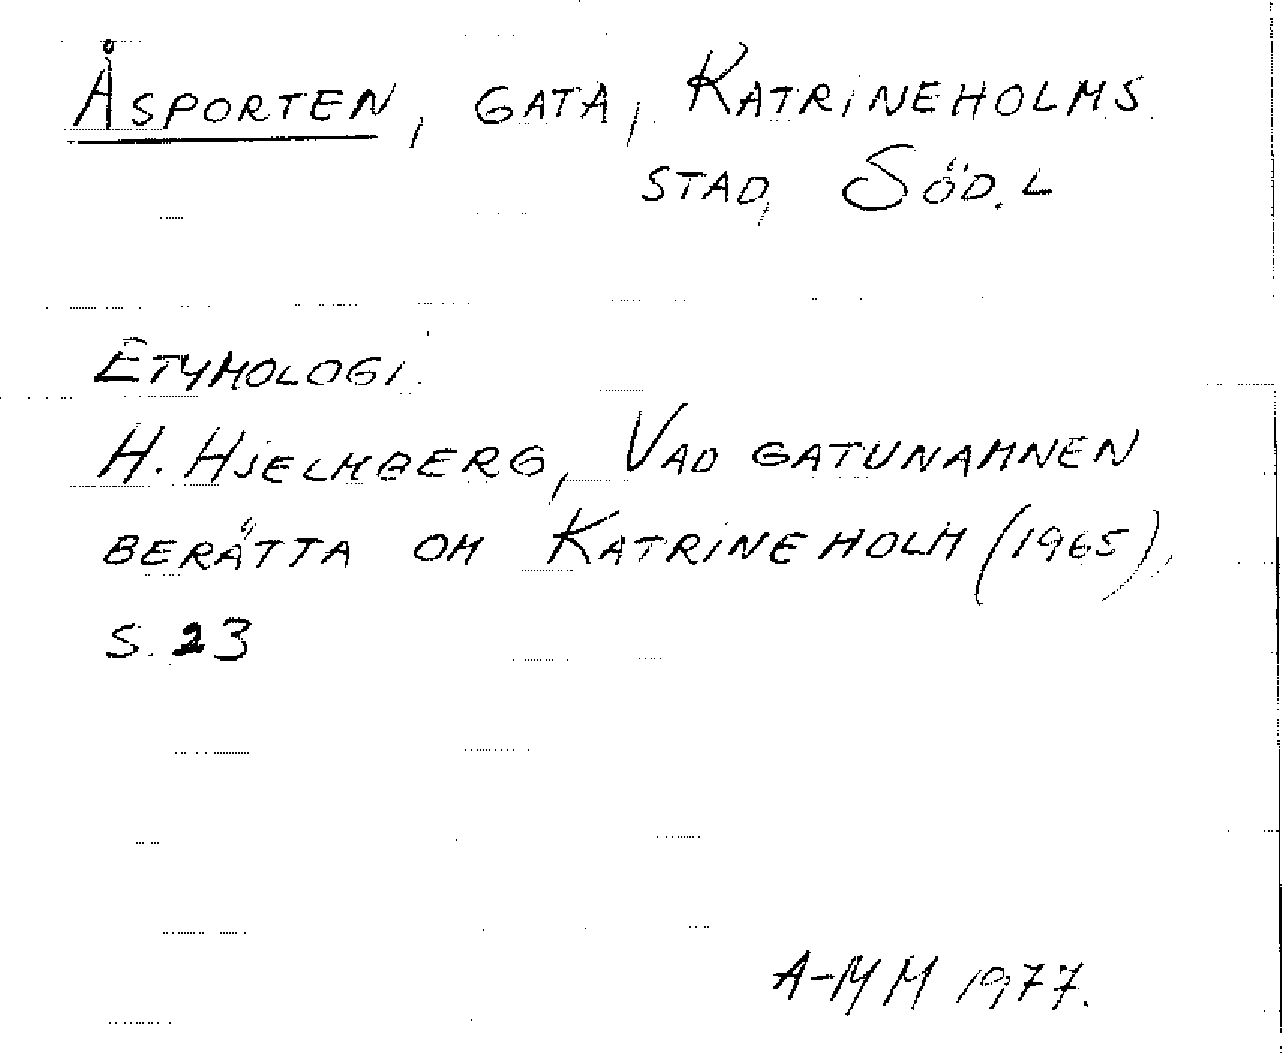 Åsporten, gata, Katrineholms
stad, Söd.l
Etymologi.
H. Hjelmberg, Vad gatunamnen
berätta om Katrineholm (1965),
s. 23
A-M M 1977.